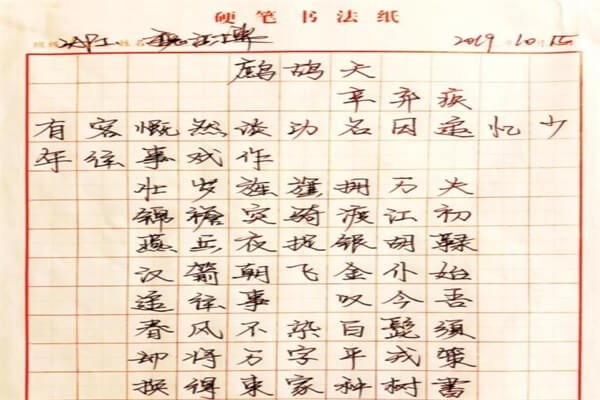 硬笔书法纸
2019 10 15
鹧鸪天
辛弃疾
有客慨然谈功名因追忆少
年往事戏作
壮岁旌旗拥万夫
锦襜突骑渡江初
燕兵夜捉银胡
汉箭朝飞金仆姑
追往事 叹今吾
春风不染白髭须
却将万字平戎策
换得东家种树書